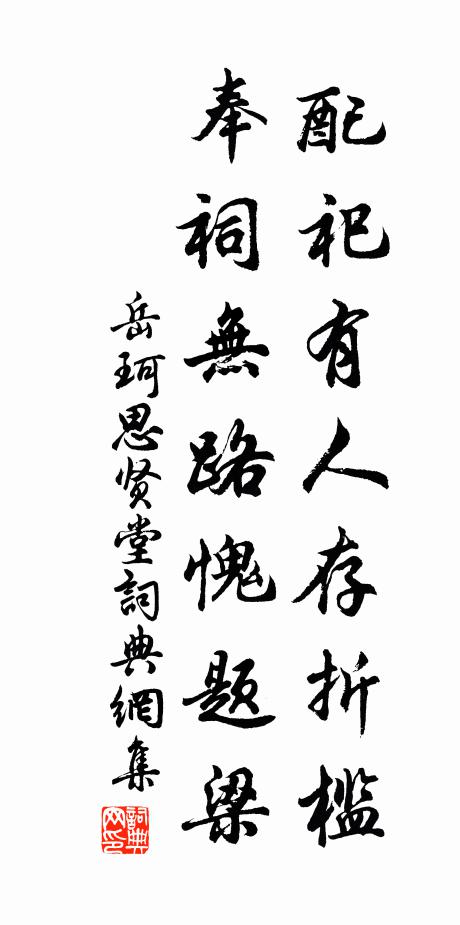 配祀有人存折槛
奉祠無路愧题梁
岳珂思贤堂詞典網集
詞典网印